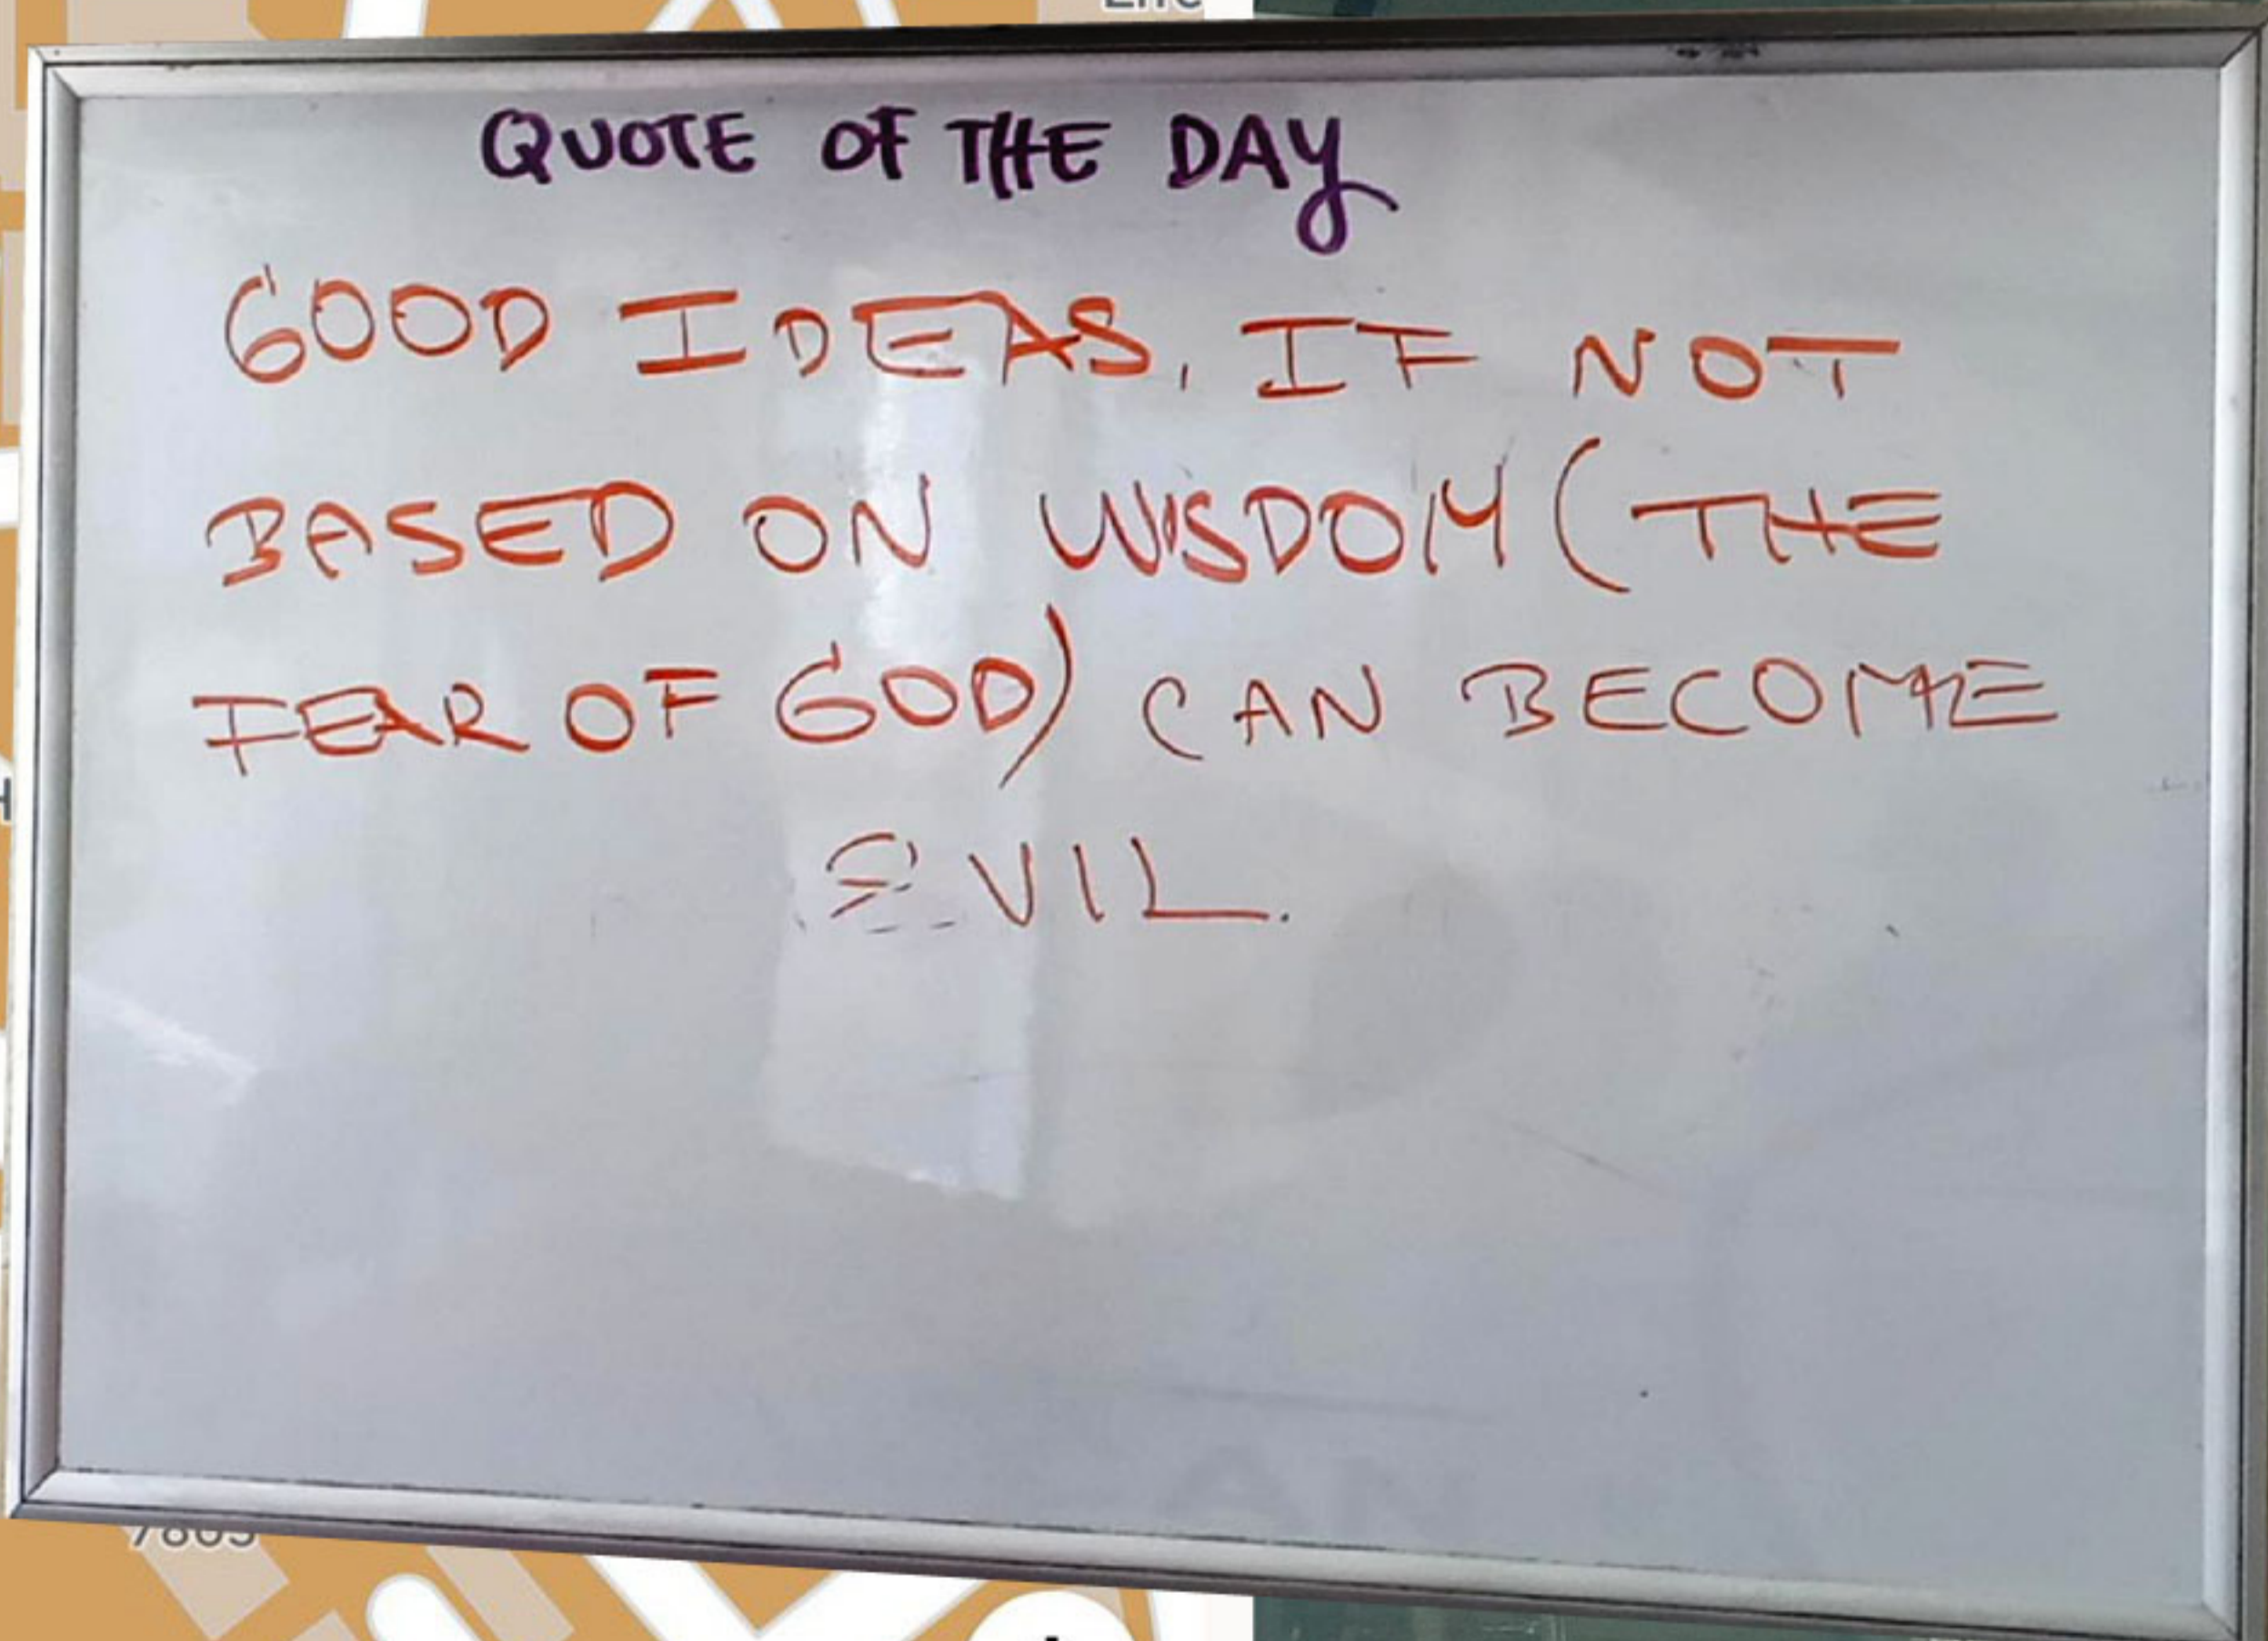 QUOTE OF THE DAY
GOOD IDEAS, IF NOT
BASED ON WISDOM (THE
FEAR OF GOD) CAN BECOME
EVIL.